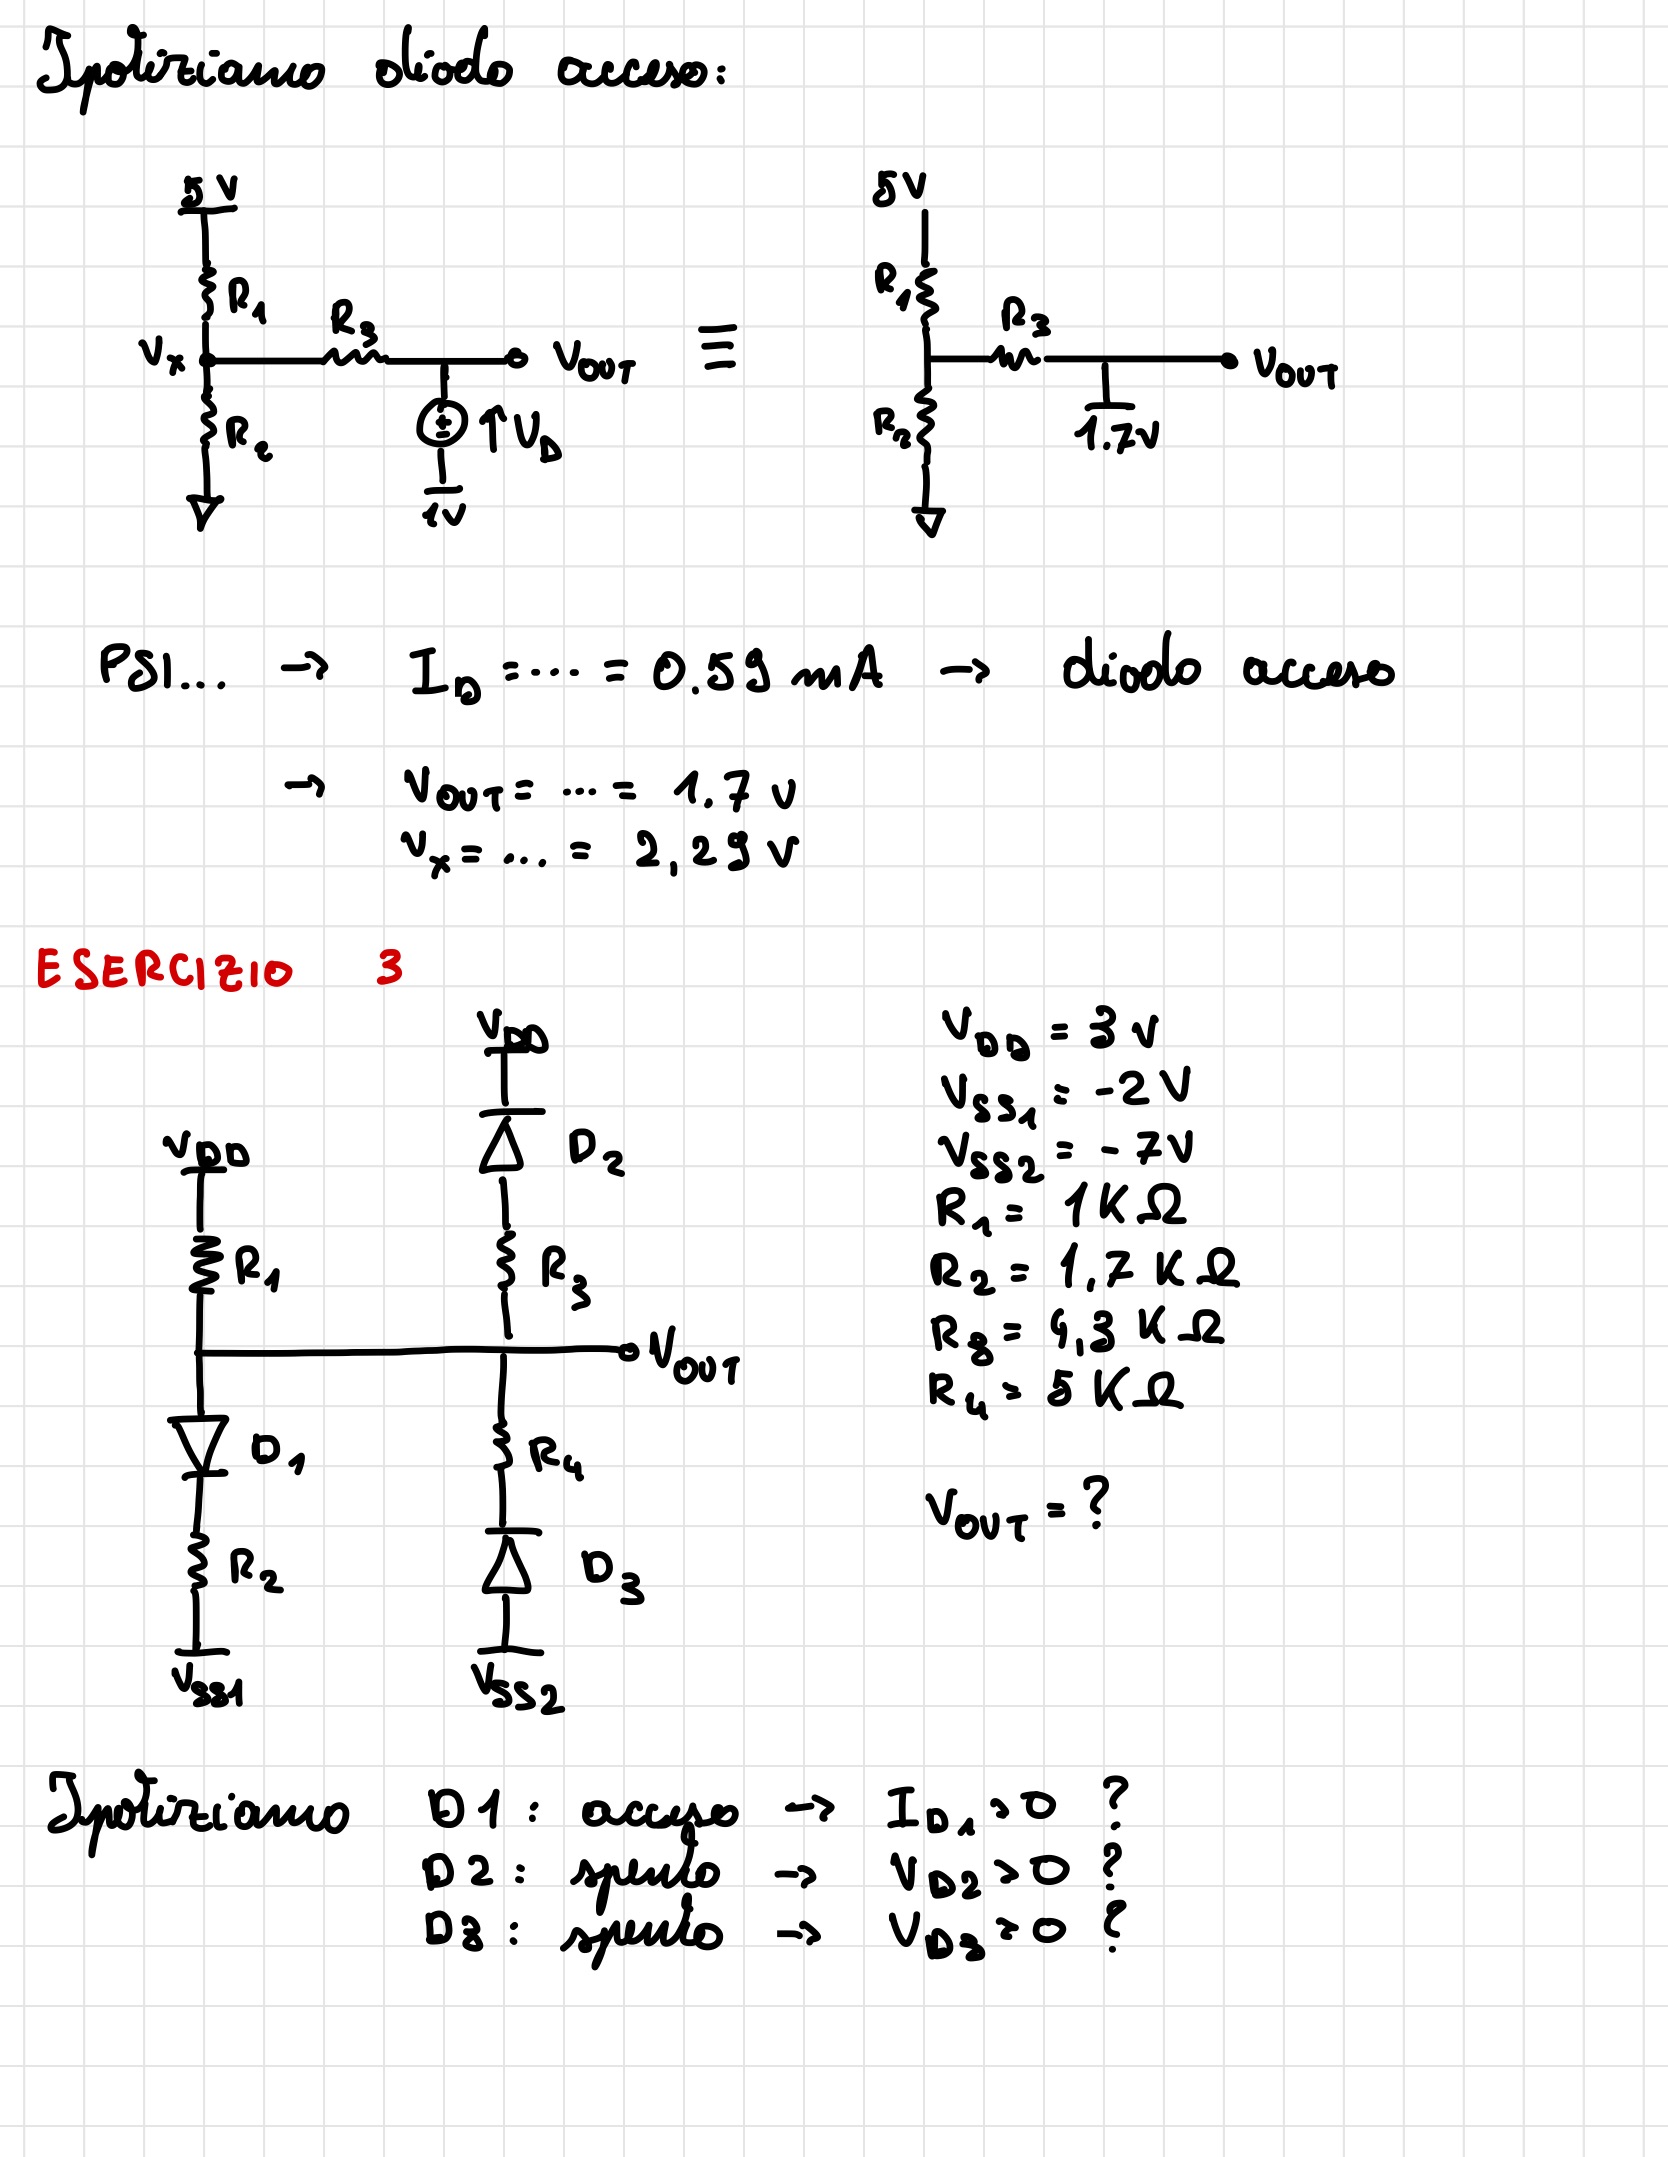 Ipotizziamo diodo acceso:
5 V
R1
Vx
R3
VOUT
R2
VD
1V
≡
5V
R1
R3
VOUT
R2
1.7V
PSI... → ID = ... = 0.59 mA → diodo acceso
→ VOUT = ... = 1.7 V
Vx = ... = 2,29 V
ESERCIZIO 3
VDD
D2
VDD
R1
R3
VOUT
D1
R4
R2
D3
VSS1
VSS2
VDD = 3 V
VSS1 = -2 V
VSS2 = -7V
R1 = 1 KΩ
R2 = 1,7 KΩ
R3 = 4,3 KΩ
R4 = 5 KΩ
VOUT = ?
Ipotizziamo D1 : acceso → ID1 > 0 ?
D2 : spento → VD2 > 0 ?
D3 : spento → VD3 > 0 ?